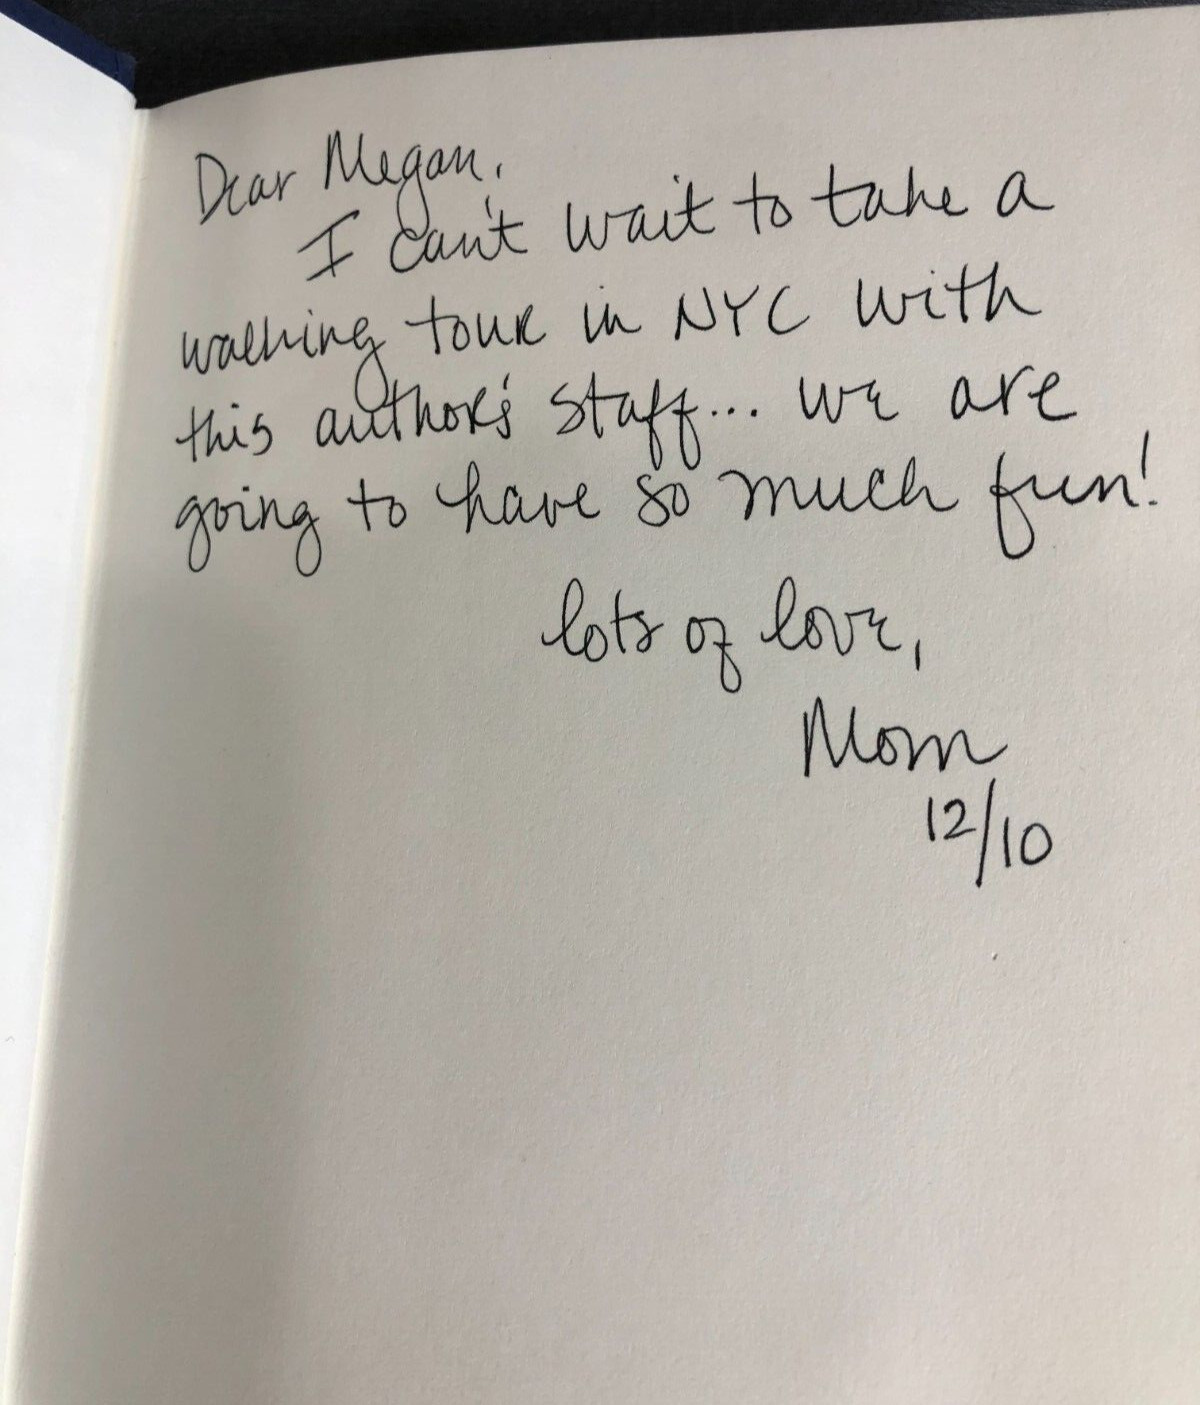 Dear Megan,
I can't wait to take a
walking tour in NYC with
this author's staff... we are
going to have so much fun!
lots of love,
Mom
12/10